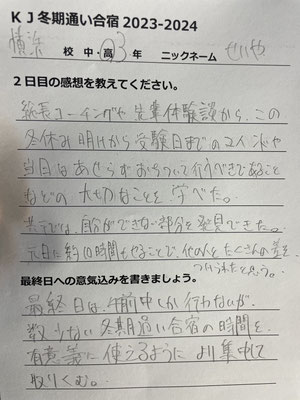 KJ冬期通い合宿 2023-2024
横浜 校 中・高 3 年 ニックネーム せいや
2日目の感想を教えてください。
総長コーチングや先輩体験談から、この
冬休み明けから受験日までの
当日はあせらずおちついて行うべきであること
などの大切なことを学べた。
では、自分ができない部分を発見できた。
元日に約10時間もやることで、他の人とたくさんの差を
つけられたと思う。
最終日への意気込みを書きましょう。
最終日は、午前中しか行わないが、
数少ない冬期通い合宿の時間を、
有意義に使えるように より集中して
取りくむ。